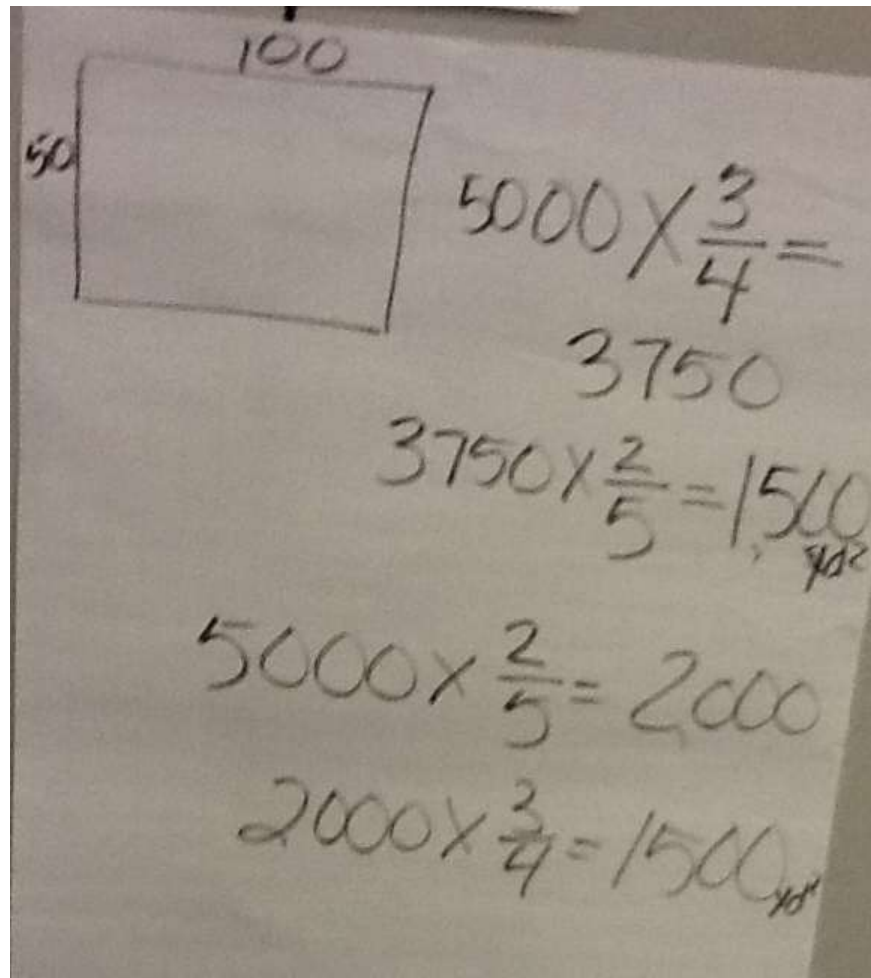 100
50
5000 × 3/4 =
3750
3750 × 2/5 = 1,500
yd²
5000 × 2/5 = 2,000
2,000 × 3/4 = 1500 yd²